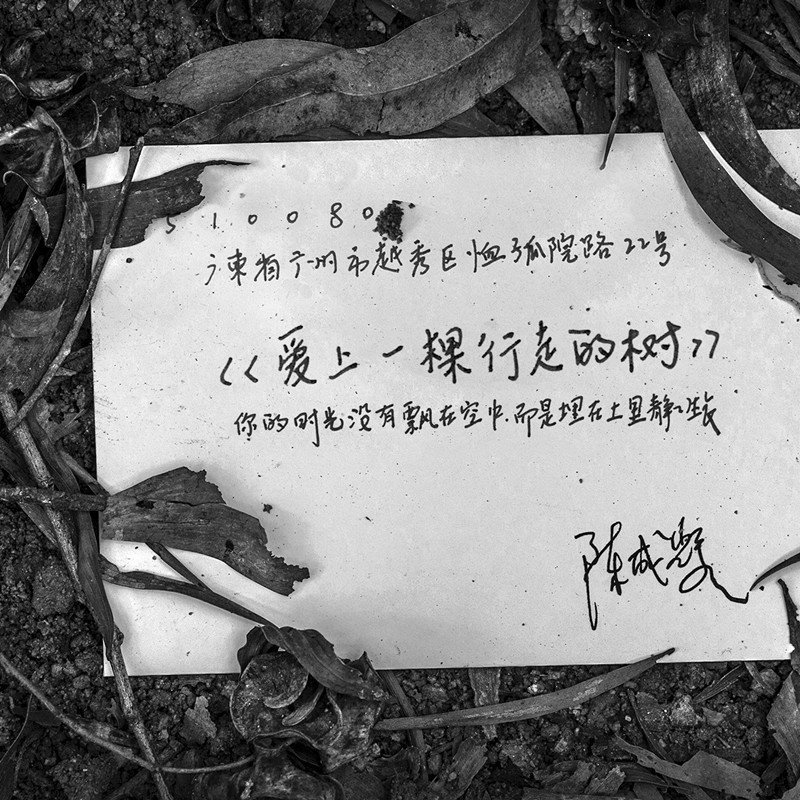 510080
广東省广州市越秀区恤孤院路22号
《爱上一棵行走的树》
你的时光没有飘在空中,而是埋在土里静静生长
陈成